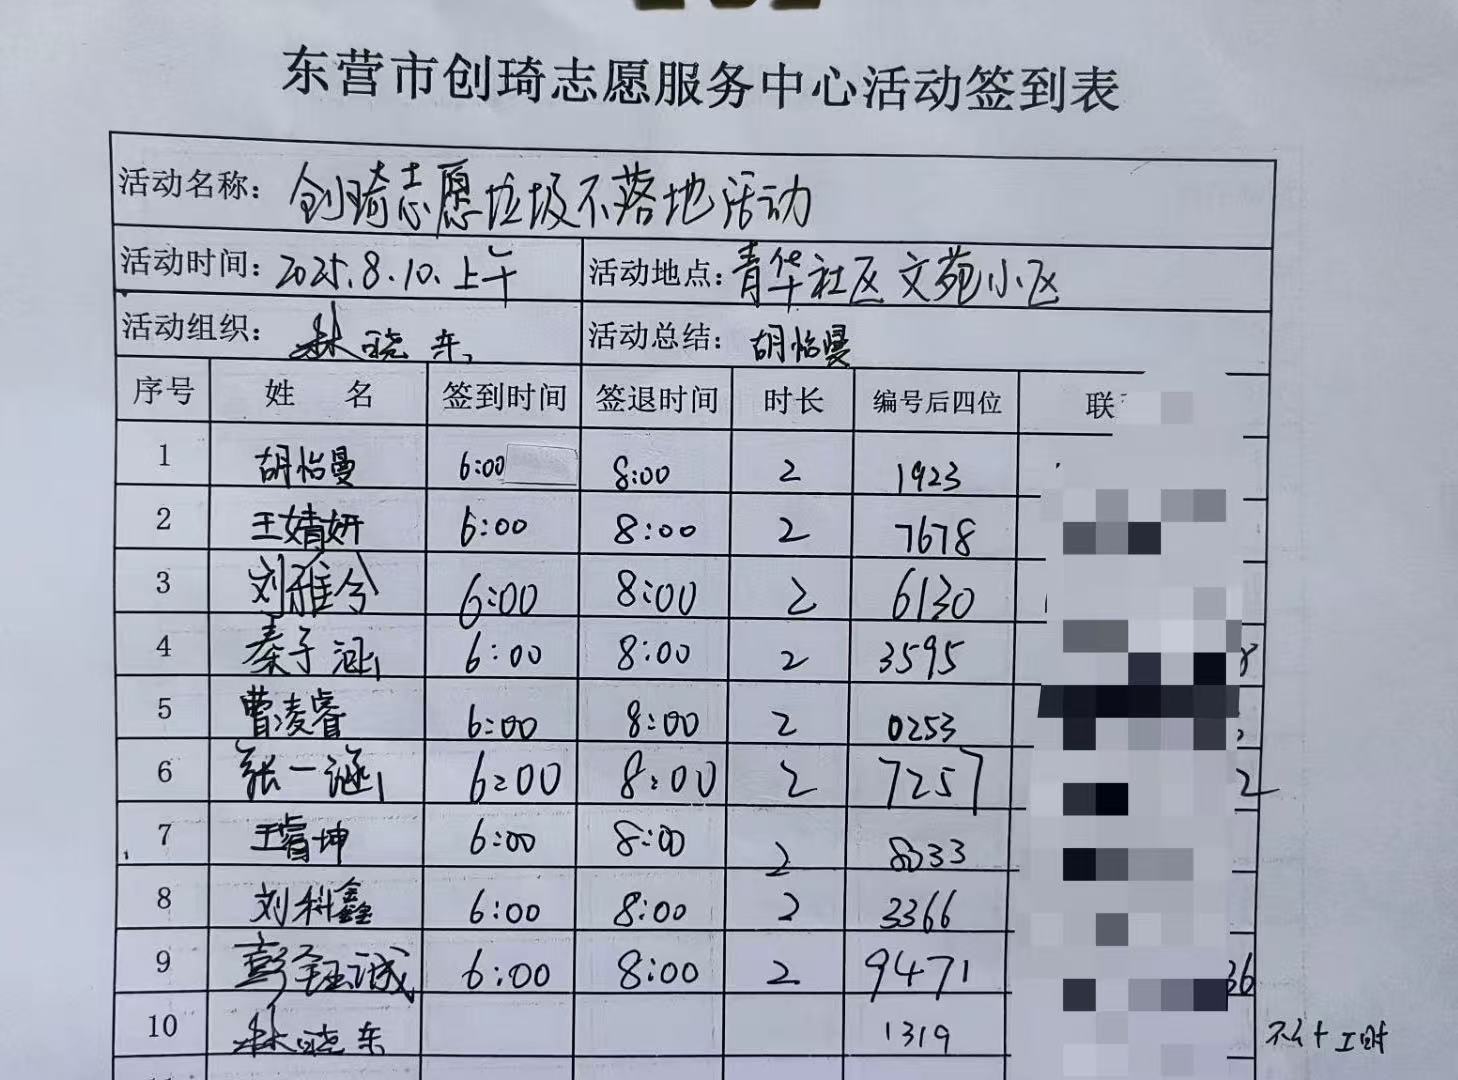 东营市创琦志愿服务中心活动签到表
活动名称：创琦志愿垃圾不落地活动
活动时间：2025.8.10.上午 活动地点：青华社区文苑小区
活动组织：林晓东 活动总结：胡怡曼
序号 姓 名 签到时间 签退时间 时长 编号后四位 联
1 胡怡曼 6:00 8:00 2 1923
2 王婧妍 6:00 8:00 2 7678
3 刘雅兮 6:00 8:00 2 6130
4 秦子涵 6:00 8:00 2 3595 8
5 曹凌睿 6:00 8:00 2 0253
6 张一涵 6:00 8:00 2 7257 2
7 王睿坤 6:00 8:00 2 8033
8 刘科鑫 6:00 8:00 2 3366
9 彭钰诚 6:00 8:00 2 9471 36
10 林晓东 1319 不计工时